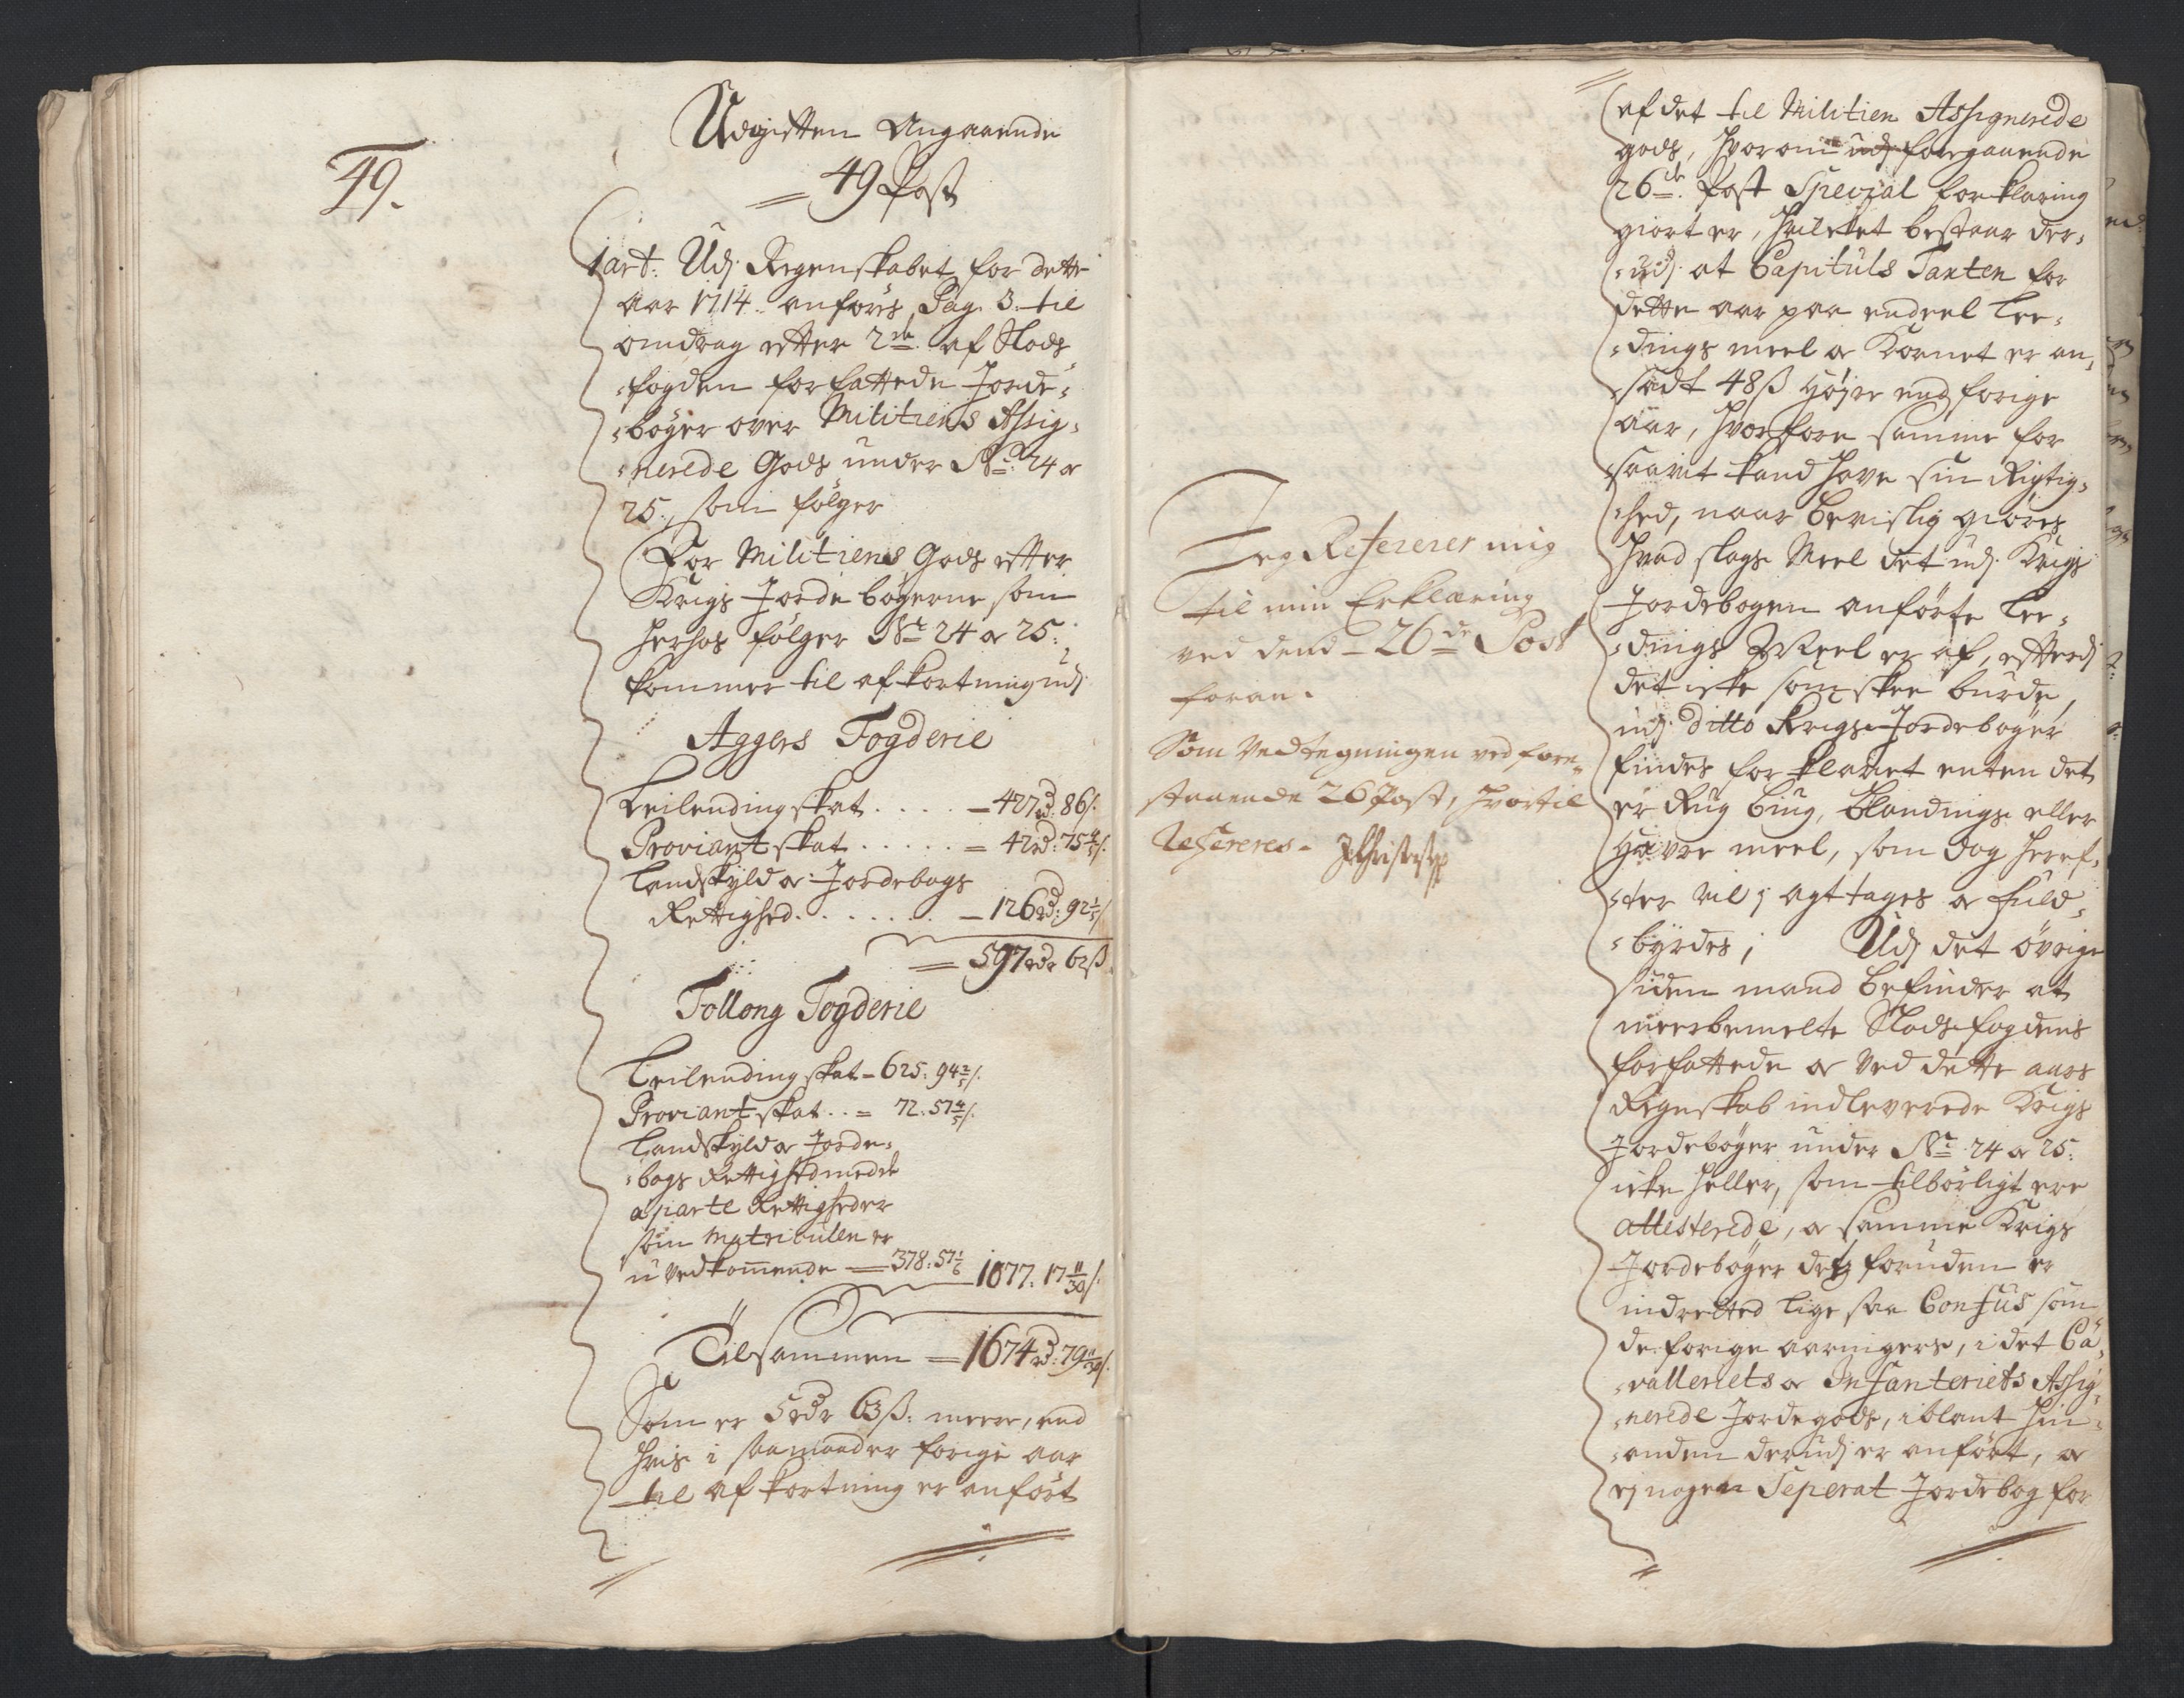 49.
Udgiften Angaaende
= 49 Post
1 art: Udj Regenskabet for dette
aar 1714. anføres Pag. 3. til
omdrag efter 2de af Slods
=fogden forfattede Jorde=
=bøger over Militiens Assig=
=nerede Gods under No: 24 og
25., som følger
For Militiens Gods efter
Krigs Jordebøgerne som
herhos følger No 24 og 25:
kommer til afkortning udj
Aggers Fogderie
Leilending skat . . . . . – 427 rd: 86 s.
Proviant skat . . . . . = 42 rd: 75 4/5 s.
Landskyld og Jordebogs
Rettighed. . . . . . . . – 126 rd: 92 1/5 s.
= 597 rdr 62 ß.
Follong Fogderie
Leilending skat – 625: 94 2/5 s.
Proviant skat . . = 72: 57 4/5 s.
Landskyld og Jorde=
=bogs Rettighed med de
aparte Rettigheder
som Matriculen er
uvedkommende — 378: 57 1/6
1077: 17 11/30 s.
Tilsammen = 1674 rd: 79 11/30 s.
Som er 5 rdr 63 ß: meere, end
hvis i saamaader forige aar
til afkortning er anført
Jeg Refererer mig
til min Erklæring
ved dend 26de Post
foran.
Som Vedtegningen ved fore=
staaende 26 Post, hvortil
Refereres.
af det til Militien Assignerede
gods, hvorom udj foregaaende
26de. Post Special forklaring
giort er, hvilcket bestaar der=
=udj at Capituls Taxten for
dette aar paa endeel Lee=
=dings meel og Kornet er an=
=sadt 48 ß høyre end forige
aar, hvorfore samme for
saavit kand have sin Rigtig=
=hed, naar beviislig giøres
hvad slags Meel det udj Krigs
Jordebogen anførte Lee=
=dings Meel er af, efterdj
det icke som skee burde,
udj ditto Krigs-Jordebøger
findes forklaret enten det
er Rug Biug, blandings eller
Havre meel, som dog heref=
=ter vil j agt tages og fuld=
=byrdes; Udj det øvrige
siden mand befinder at
meerbemelte Slodsfogdens
forfattede og ved dette aars
Regnskab indleverede Krigs
Jordebøger under No 24 og 25:
icke heller, som tilbørligt ere
attesterede, og samme Krigs
Jordebøger des foruden er
indretted lige saa Confus som
de forige aaringers, i det Ca=
=valleriets og Infanteriets Assig=
=nerede Jordegods, iblant hin=
=anden derudj er anført, og
ej nogen Seperat Jordebog for